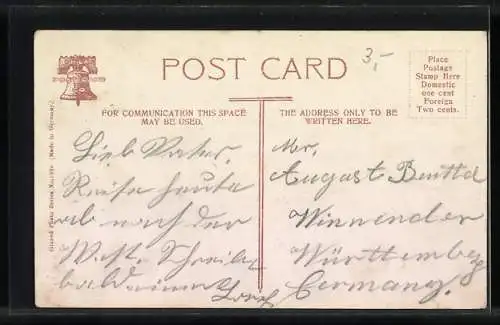 3,-
POST CARD
Place
Postage
Stamp Here
Domestic
one cent
Foreign
Two cents.
FOR COMMUNICATION THIS SPACE
MAY BE USED.
THE ADDRESS ONLY TO BE
WRITTEN HERE.
(Made in Germany.)
Lieb Vater,
Reise heute
ab nach der
West. Schreibe
bald
Mr.
August
Winnenden
Württemberg
Germany.